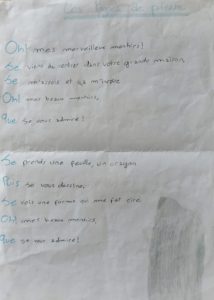 Les Paris de pierre
Oh! mes merveilleux menhirs!
Je viens de rentrer dans votre grande maison,
Je m'assois et ça m'inspire
Oh! mes beaux menhirs,
Que je vous admire!
Je prends une feuille, un crayon
Puis je vous dessine,
Je vois une forme qui me fait rire
Oh! mes beaux menhirs,
Que je vous admire!